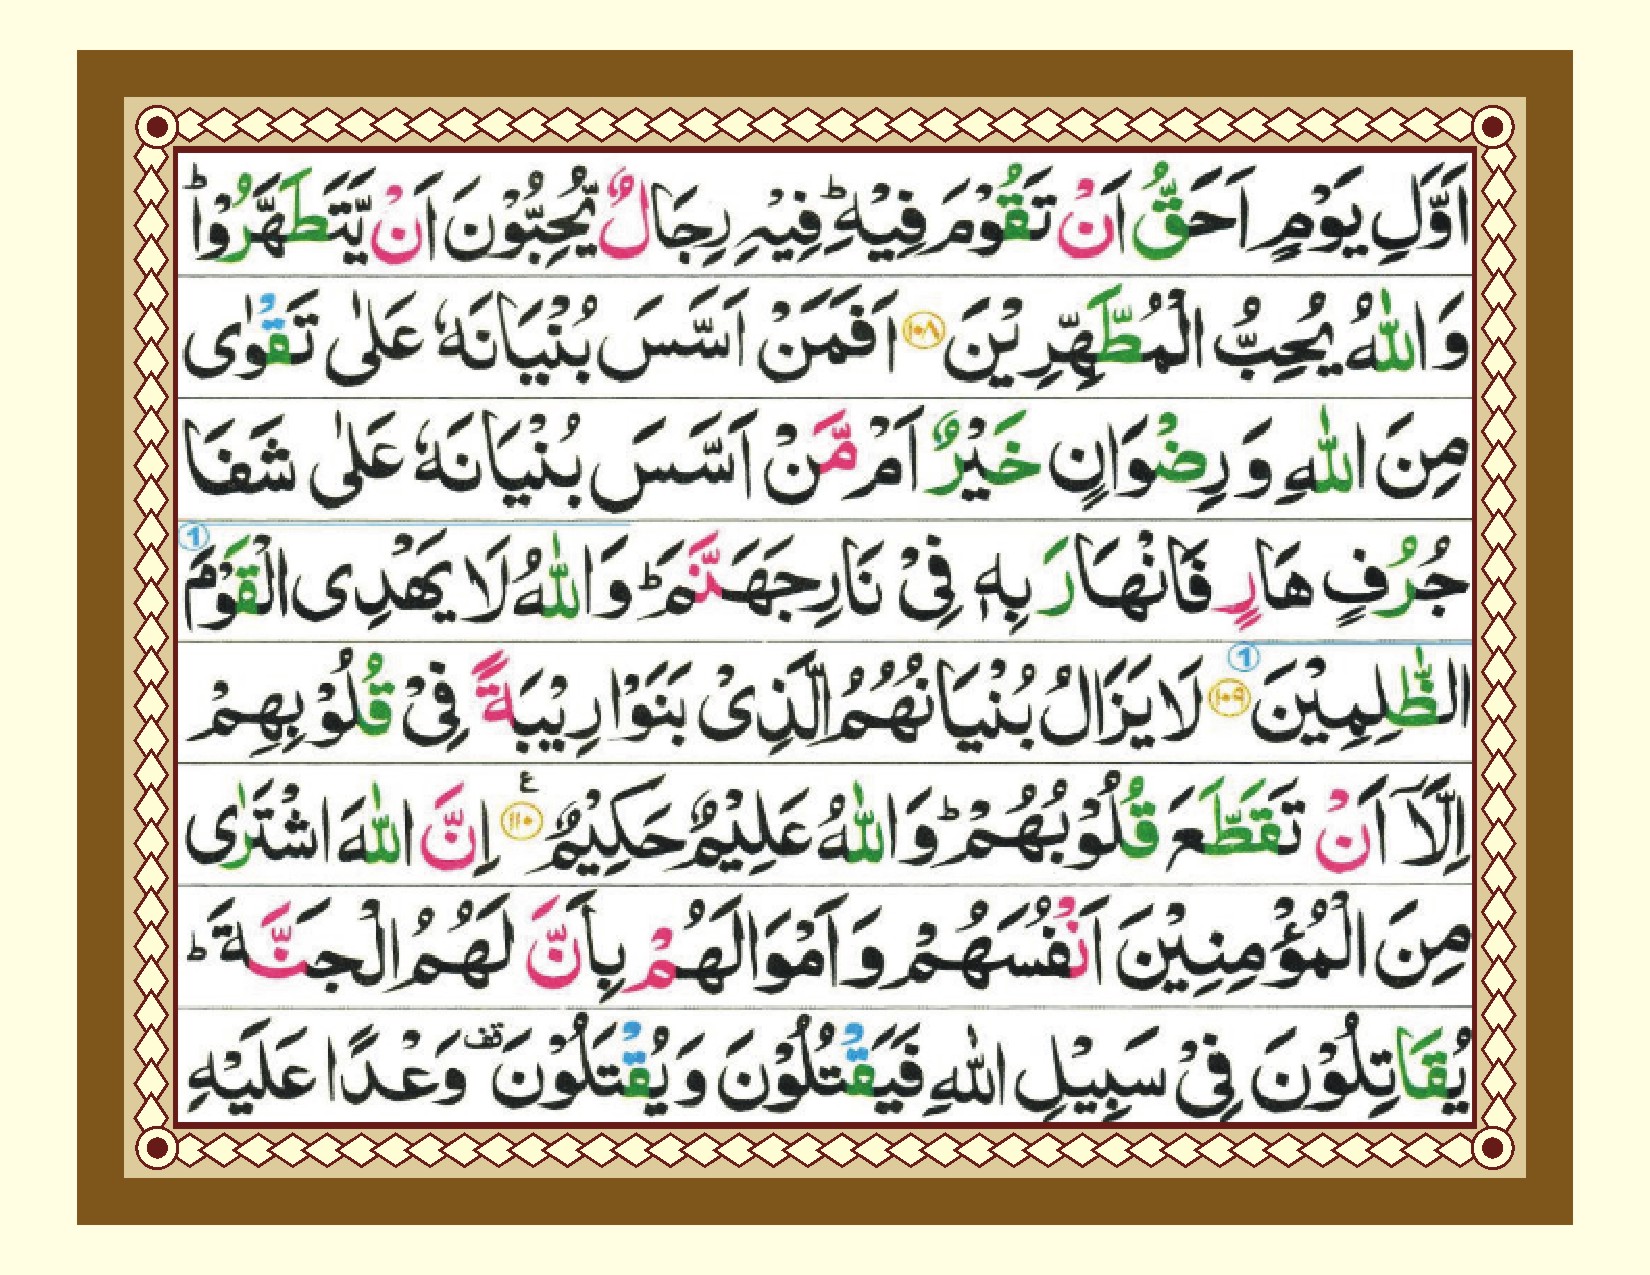 اَوَّلِ يَوْمٍ اَحَقُّ اَنْ تَقُوْمَ فِيْهِ ؕ فِيْهِ رِجَالٌ يُّحِبُّوْنَ اَنْ يَّتَطَهَّرُوْا ؕ
وَ اللّٰهُ يُحِبُّ الْمُطَّهِّرِيْنَ ﴿۱۰۸﴾ اَفَمَنْ اَسَّسَ بُنْيَانَهٗ عَلٰى تَقْوٰى
مِنَ اللّٰهِ وَ رِضْوَانٍ خَيْرٌ اَمْ مَّنْ اَسَّسَ بُنْيَانَهٗ عَلٰى شَفَا
جُرُفٍ هَارٍ فَانْهَارَ بِهٖ فِيْ نَارِ جَهَنَّمَ ؕ وَ اللّٰهُ لَا يَهْدِى الْقَوْمَ 1
الظّٰلِمِيْنَ 1 ﴿۱۰۹﴾ لَا يَزَالُ بُنْيَانُهُمُ الَّذِيْ بَنَوْا رِيْبَةً فِيْ قُلُوْبِهِمْ
اِلَّاۤ اَنْ تَقَطَّعَ قُلُوْبُهُمْ ؕ وَ اللّٰهُ عَلِيْمٌ حَكِيْمٌ ﴿۱۱۰﴾ ع اِنَّ اللّٰهَ اشْتَرٰى
مِنَ الْمُؤْمِنِيْنَ اَنْفُسَهُمْ وَ اَمْوَالَهُمْ بِاَنَّ لَهُمُ الْجَنَّةَ ؕ
يُقَاتِلُوْنَ فِيْ سَبِيْلِ اللّٰهِ فَيَقْتُلُوْنَ وَ يُقْتَلُوْنَ قف وَعْدًا عَلَيْهِ